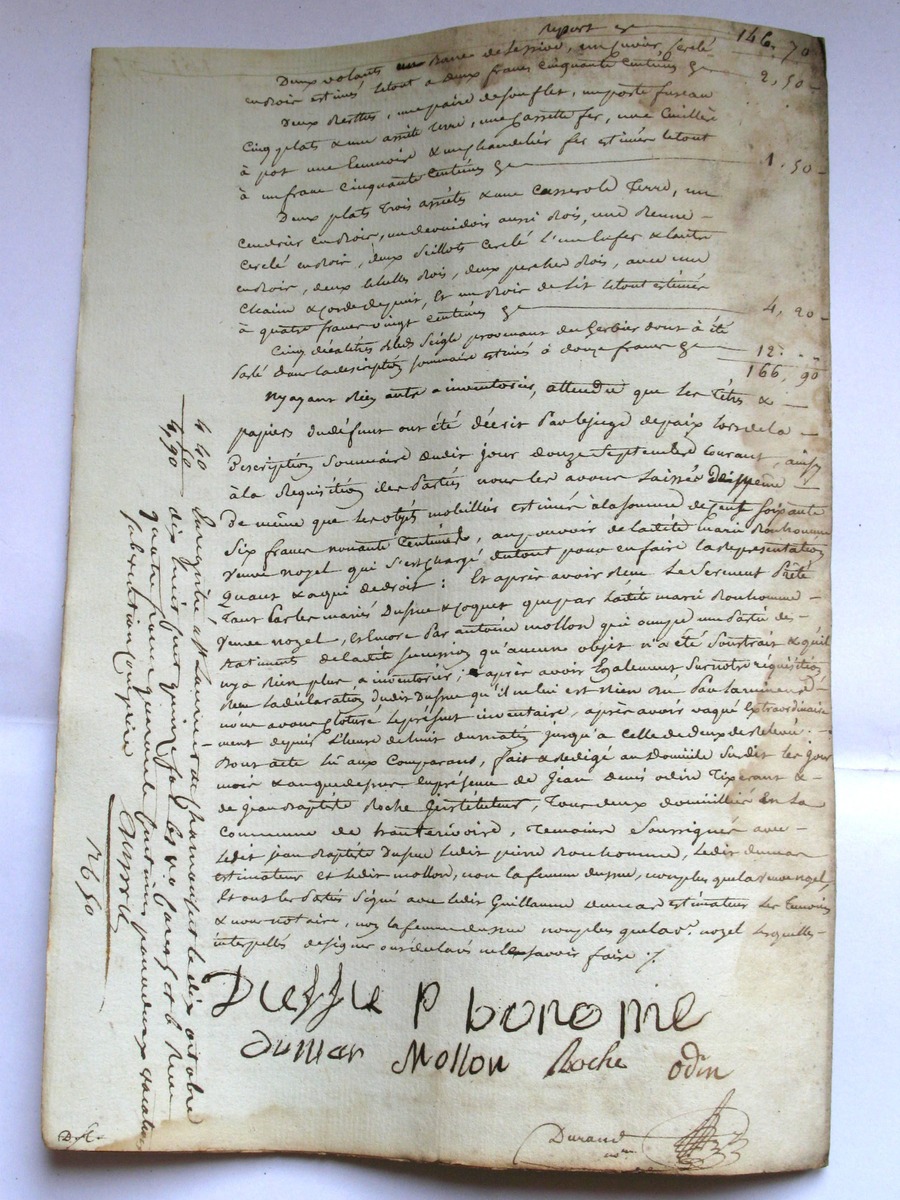 Report 146, 70
Deux volants, un banc de lessive, un cuvier, cerclé
en bois estimés letout a deux francs Cinquante Centimes 2, 50
Deux une paire de soufflet, un porte fuseau
Cinq plats & une assiète terre, une Cassette fer, une Cuillère
à pot une & un chandelier fer estimés letout
à un franc Cinquante Centimes 1, 50
Deux plats trois assiètes & une Casserole Terre, un
Cendrier en bois, un devidoir aussi bois, une Benne
Cerclé en bois, deux Seillots Cerclé l'un en fer & l'autre
en bois, deux bois, deux bois, avec une
Chaine & corde de puit, Et un bois de Lit letout estimés
à quatre francs vingt Centimes 4, 20
Cinq bled Seigle provenant du Gerbier dont à été
parlé dans la description sommaire estimés à douze francs 12
166, 90
N'y ayant Rien autre a inventorier, attendu que les titres &
papiers du défunt ont été décrit Par le juge de paix lors de la
Description Sommaire du dit jour douze Septembre Courant, ainsy
à la Requisition des Parties nous les avons Laissés
De même que les objets mobilliers estimés à la somme de Cent Soixante
Six francs nonante Centimes, au pouvoir de la dite marie Bonhomme
Veuve nozel qui s'est Chargé du tout pour en faire la Representation
Quant & a qui de droit : Et après avoir Reçu Le Serment Prêté
Tant Par les mariés Dussue & Coquet que par Ladite marie Bonhomme
Veuve nozel, et Encore Par antoine mollon qui occupe une Partie des
Batiments de la dite succession qu'aucune objet n'a été soustrait & qu'il
n'y a Rien plus a inventorier ; & après avoir Egalement Sur notre réquisition
Reçu La déclaration du dit Dussue qu'il ne lui est Rien dû Par La mineure
nous avons Cloturé le présent inventaire, après avoir vaqué Extraordinaire
ment depuis L'heure de huit du matin jusqu'a celle de deux de Relevé.
Dont acte Lû aux Comparans, fait & Redigé au Domicile Susdit les jour
mois & an que dessus En présence de Jean Denis odin Tixerant &
de Jean Baptiste Roche Instituteur, Tous deux domiciliés En la
Commune de hauterivoire, Temoins Soussignés avec
Ledit jean Baptiste Dussue Ledit pierre Bonhomme, Ledit dumar
Estimateur et Ledit mollon, non la femme dussue, non plus que la veuve nozel,
Et ont les Partés Signé avec Ledit Guillaume dumar Estimateur Les Temoins
& nous notaire, non la femme dussue non plus que la Ve. nozel Lesquelles
interpellés de signer ont déclaré ne le savoir faire ./.
Dussue P bonome
dumar Mollon Roche odin
Durand
no.re
4 40
50
4, 90
Enregistré à St Laurent de chamousset le dix octobre
dix huit cent quinze fol. 65 Vo. Cases 5 et 6 Reçu
quatre francs quarante Centimes pour deux vacations
subvention Comprise